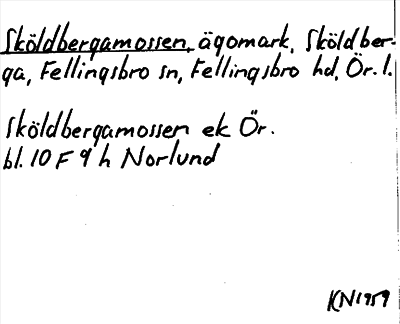 Sköldbergamossen, ägomark, Sköldber-
ga, Fellingsbro sn, Fellingsbro hd, Ör. l.
Sköldbergamossen ek Ör.
bl. 10 F 9 h Norlund
KN1959